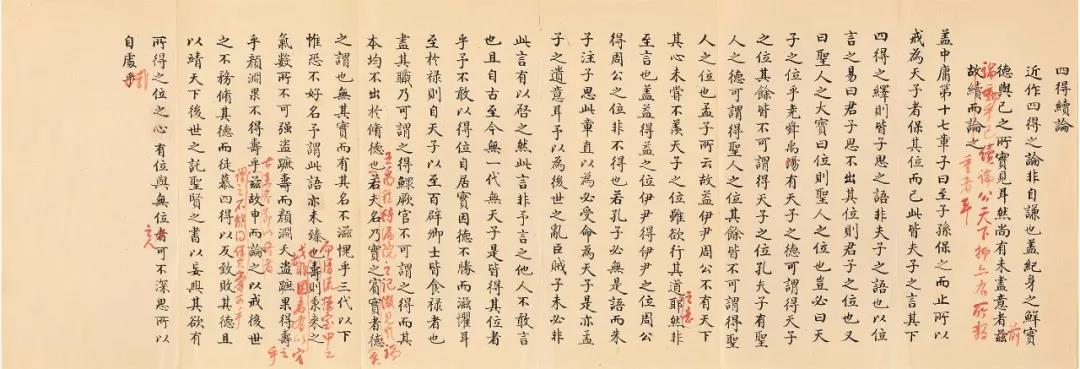 四得續論
近作四得之論非自謙也蓋紀身之鮮實
德與己之所實見耳然尚有未盡意者茲
故續而論之
蓋中庸第十七章子曰至子孫保之而止所以
戒為天子者保其位而已此皆夫子之言其下
四得之繹則皆子思之語非夫子之語也以位
言之易曰君子思不出其位則君子之位也又
曰聖人之大寶曰位則聖人之位也豈必曰天
子之位乎堯舜禹湯有天子之德可謂得天子
之位其餘皆不可謂得天子之位孔夫子有聖
人之德可謂得聖人之位其餘皆不可謂得聖
人之位也孟子所云故益伊尹周公不有天下
其心未嘗不羨天子之位雖欲行其道耶然非
至言也蓋益得益之位伊尹得伊尹之位周公
得周公之位非不得也若孔子必無是語而朱
子注子思此章直以為必受命為天子是亦孟
子之遺意耳予以為後世之亂臣賊子未必非
此言有以啓之然此言非予言之他人不敢言
也且自古至今無一代無天子是皆得其位者
乎予不敢以得位自居實因德不勝而滋懼耳
至於祿則自天子以至百辟卿士皆食祿者也
盡其職乃可謂之得鰥厥官不可謂之得而其
本均不出於脩德也若夫名乃實之賓實者德
之謂也無其實而有其名不滋愧乎三代以下
惟恐不好名予謂此語亦未臻也壽則稟來之
氣數所不可強盜蹠壽而顏淵夭盜蹠果得壽
乎顏淵果不得壽乎茲故申而論之以戒後世
之不務脩其德而徒慕四得以反致敗其德且
以靖天下後世之託聖賢之書以妄興其欲有
所得之位之心有位與無位者可不深思所以
自處乎